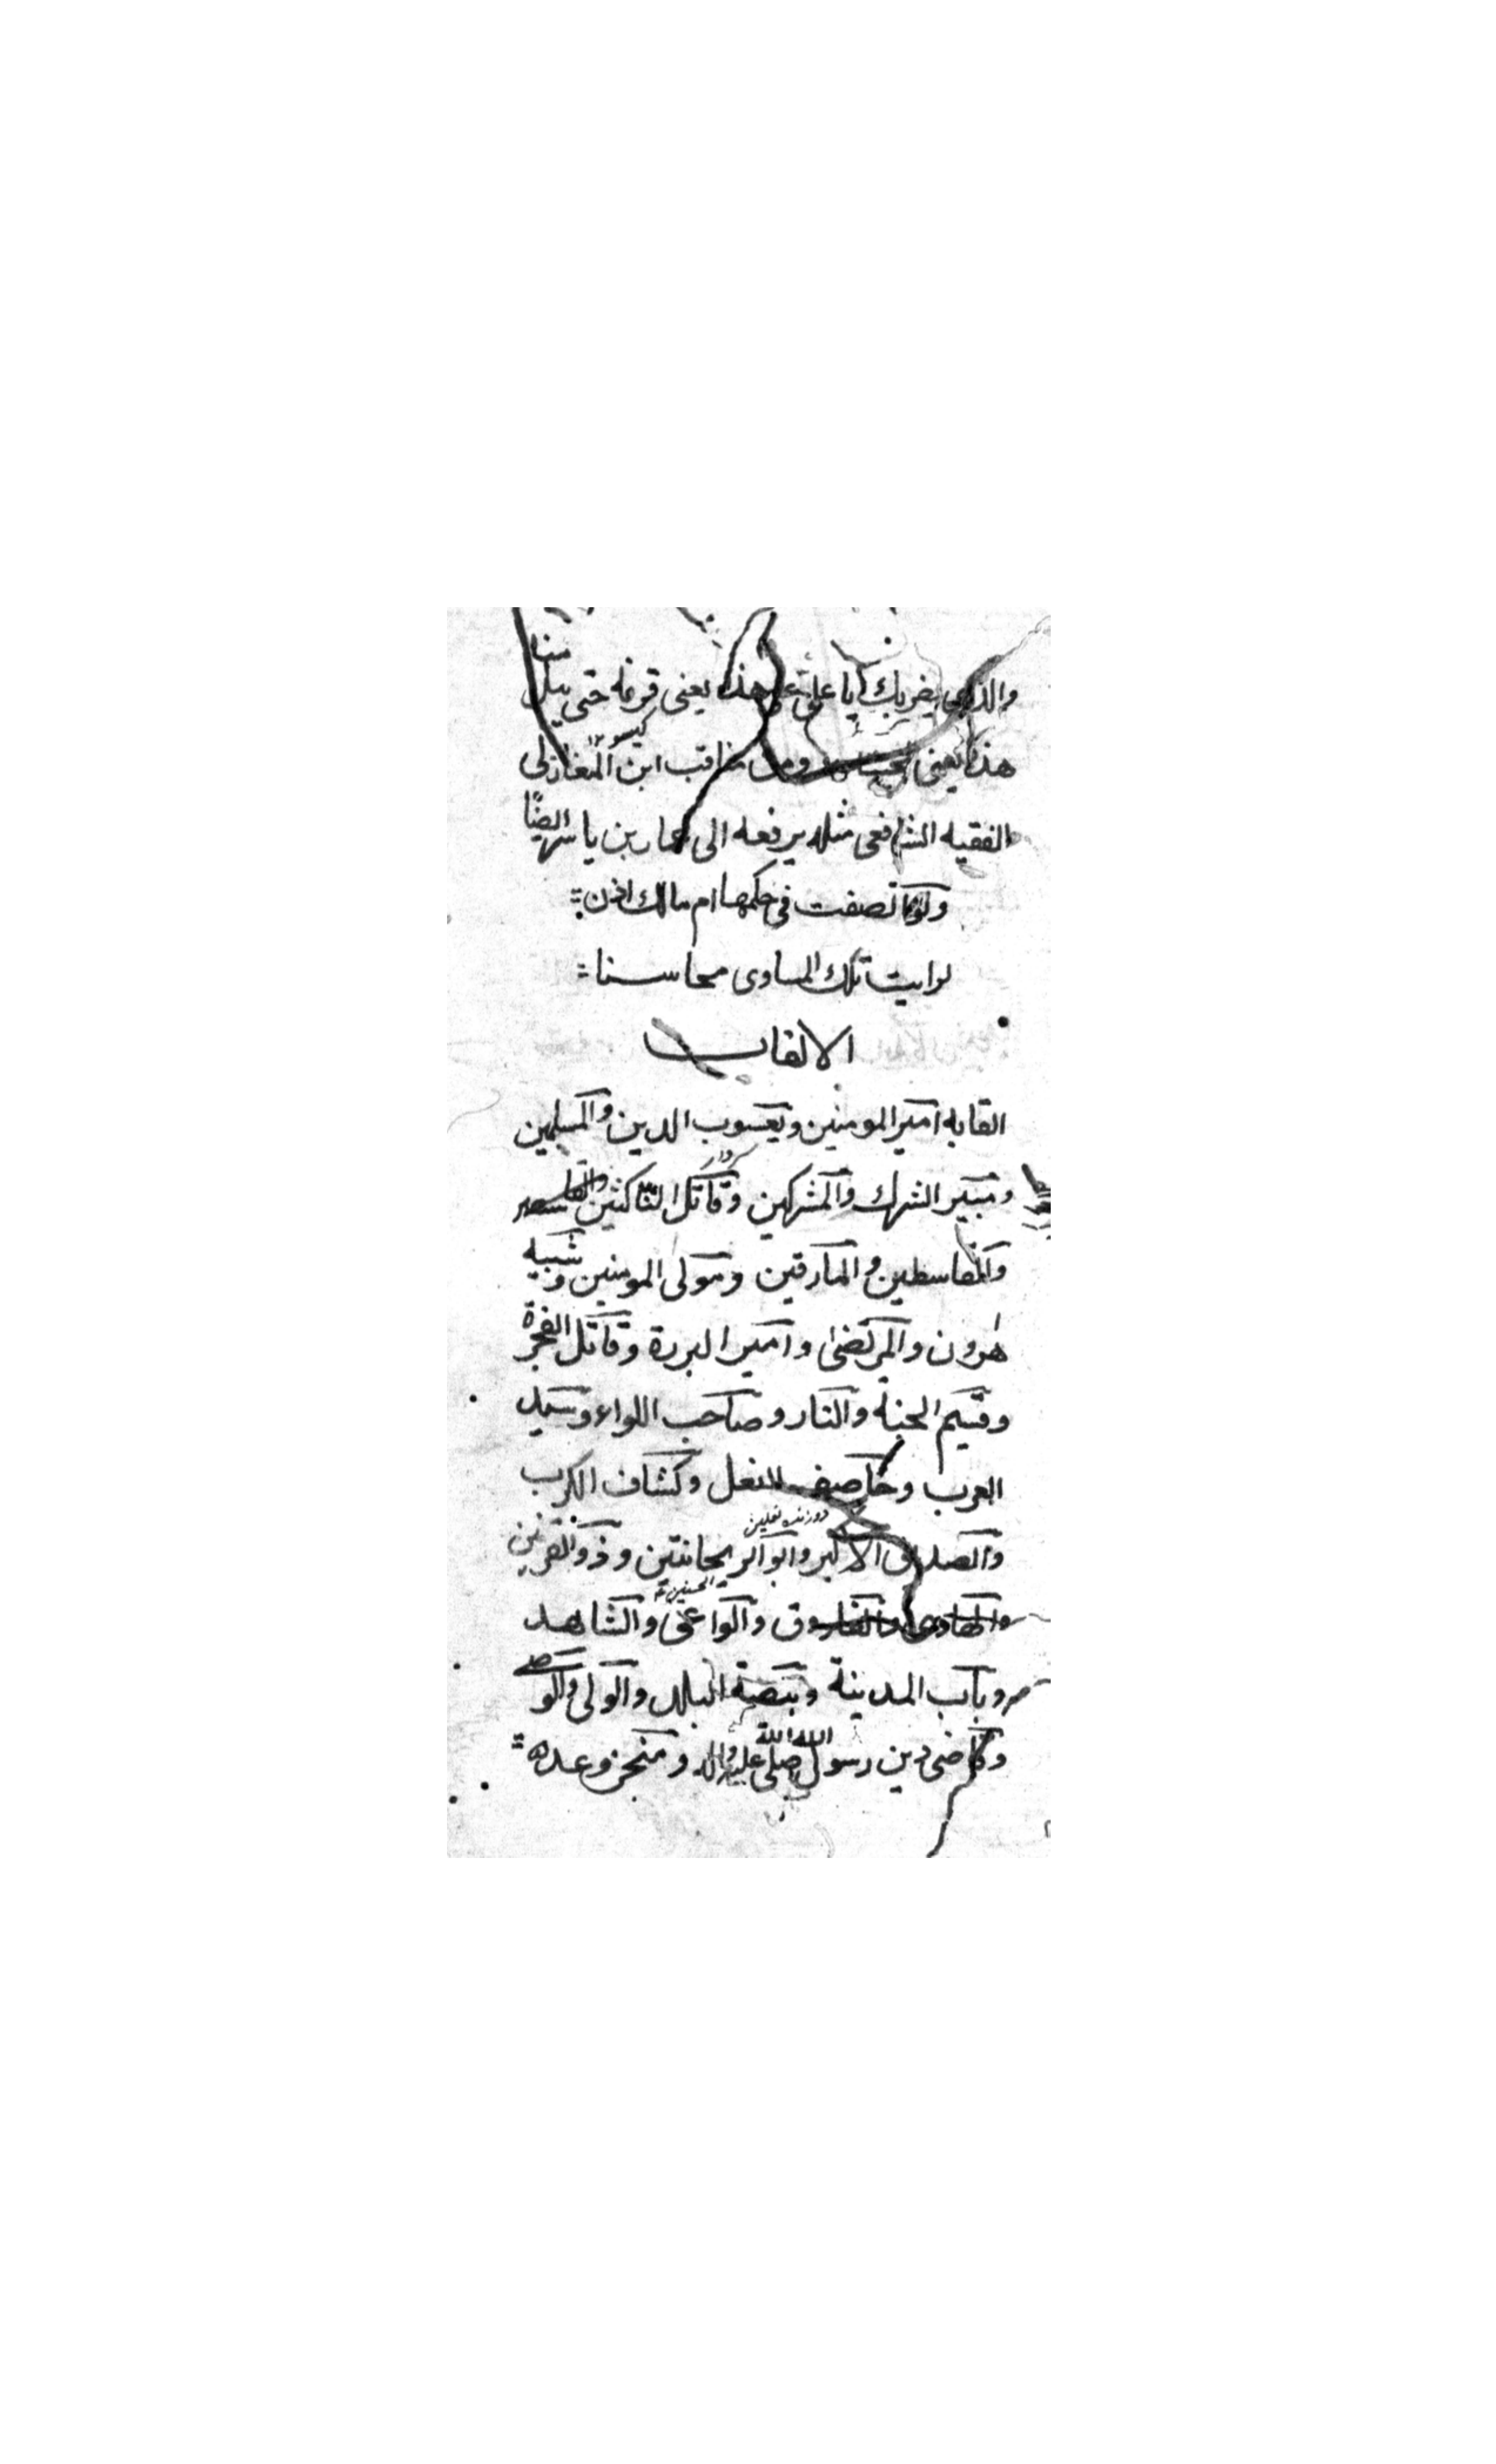 والذى يضربك يا على على هذه يعنى قرنه حتى يبل منها
هذه يعنى لحيته ومن مناقب ابن المغازلى
الفقيه الشافعى مثله يرفعه الى عمار بن ياسر ايضًا
ولو انصفت فى حكمها ام مالك اذن
لرايت تلك المساوى محاسنا
الالقاب
القابه امير المومنين ويعسوب الدين والمسلمين
ومبير الشرك والمشركين وقاتل الناكثين
سردار
والقاسطين والمارقين ومولى المومنين وشبيه
هرون والمرتضى وامير البررة وقاتل الفجرة
وقسيم الجنة والنار وصاحب اللواء وسيد
العرب وخاصف النعل وكشاف الكرب
دوزنده نعلين
والصديق الاكبر وابو الريحانتين وذو القرنين
والهادى والفاروق والواعى والشاهد
وباب المدينة وبيضة البلد والولى والوصى
وقاضى دين رسول الله صلى الله عليه واله ومنجز وعده